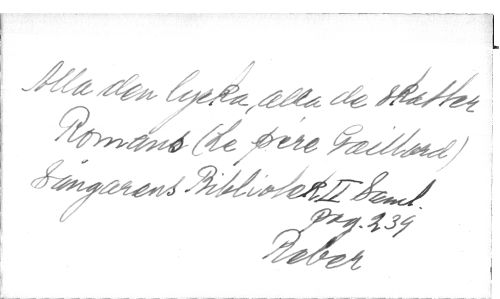 Alla den lycka, alla de skatter
Romans (Le père Gaillard)
Sångarens Bibliotek, II Saml.
pag. 239
Reber